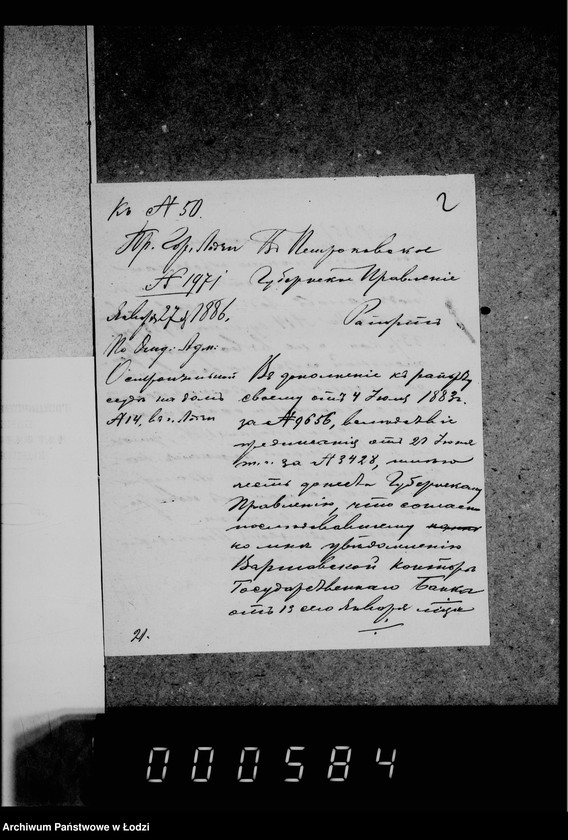 Къ № 50.
2
Пр. Гор. Лодзи
№ 1971
Января 27 д. 1886.
По Экзд: Адм:
О строительной
ссуде на домъ
№ 14, въ г. Лодзи
Въ Петроковское
Губернское Правленіе
Рапортъ
Въ дополненіе къ рапорту
своему отъ 4 Іюля 1883 г.
за № 9656, вслѣдствіе
предписанія отъ 27 Іюня
т. г. за № 3428, имѣю
честь донести Губернскому
Правленію, что согласно
послѣдовавшему
ко мнѣ увѣдомленію
Варшавской Конторы
Государственнаго Банка
отъ 13 сего Января мѣсяца
21.
000584
Archiwum Państwowe w Łodzi